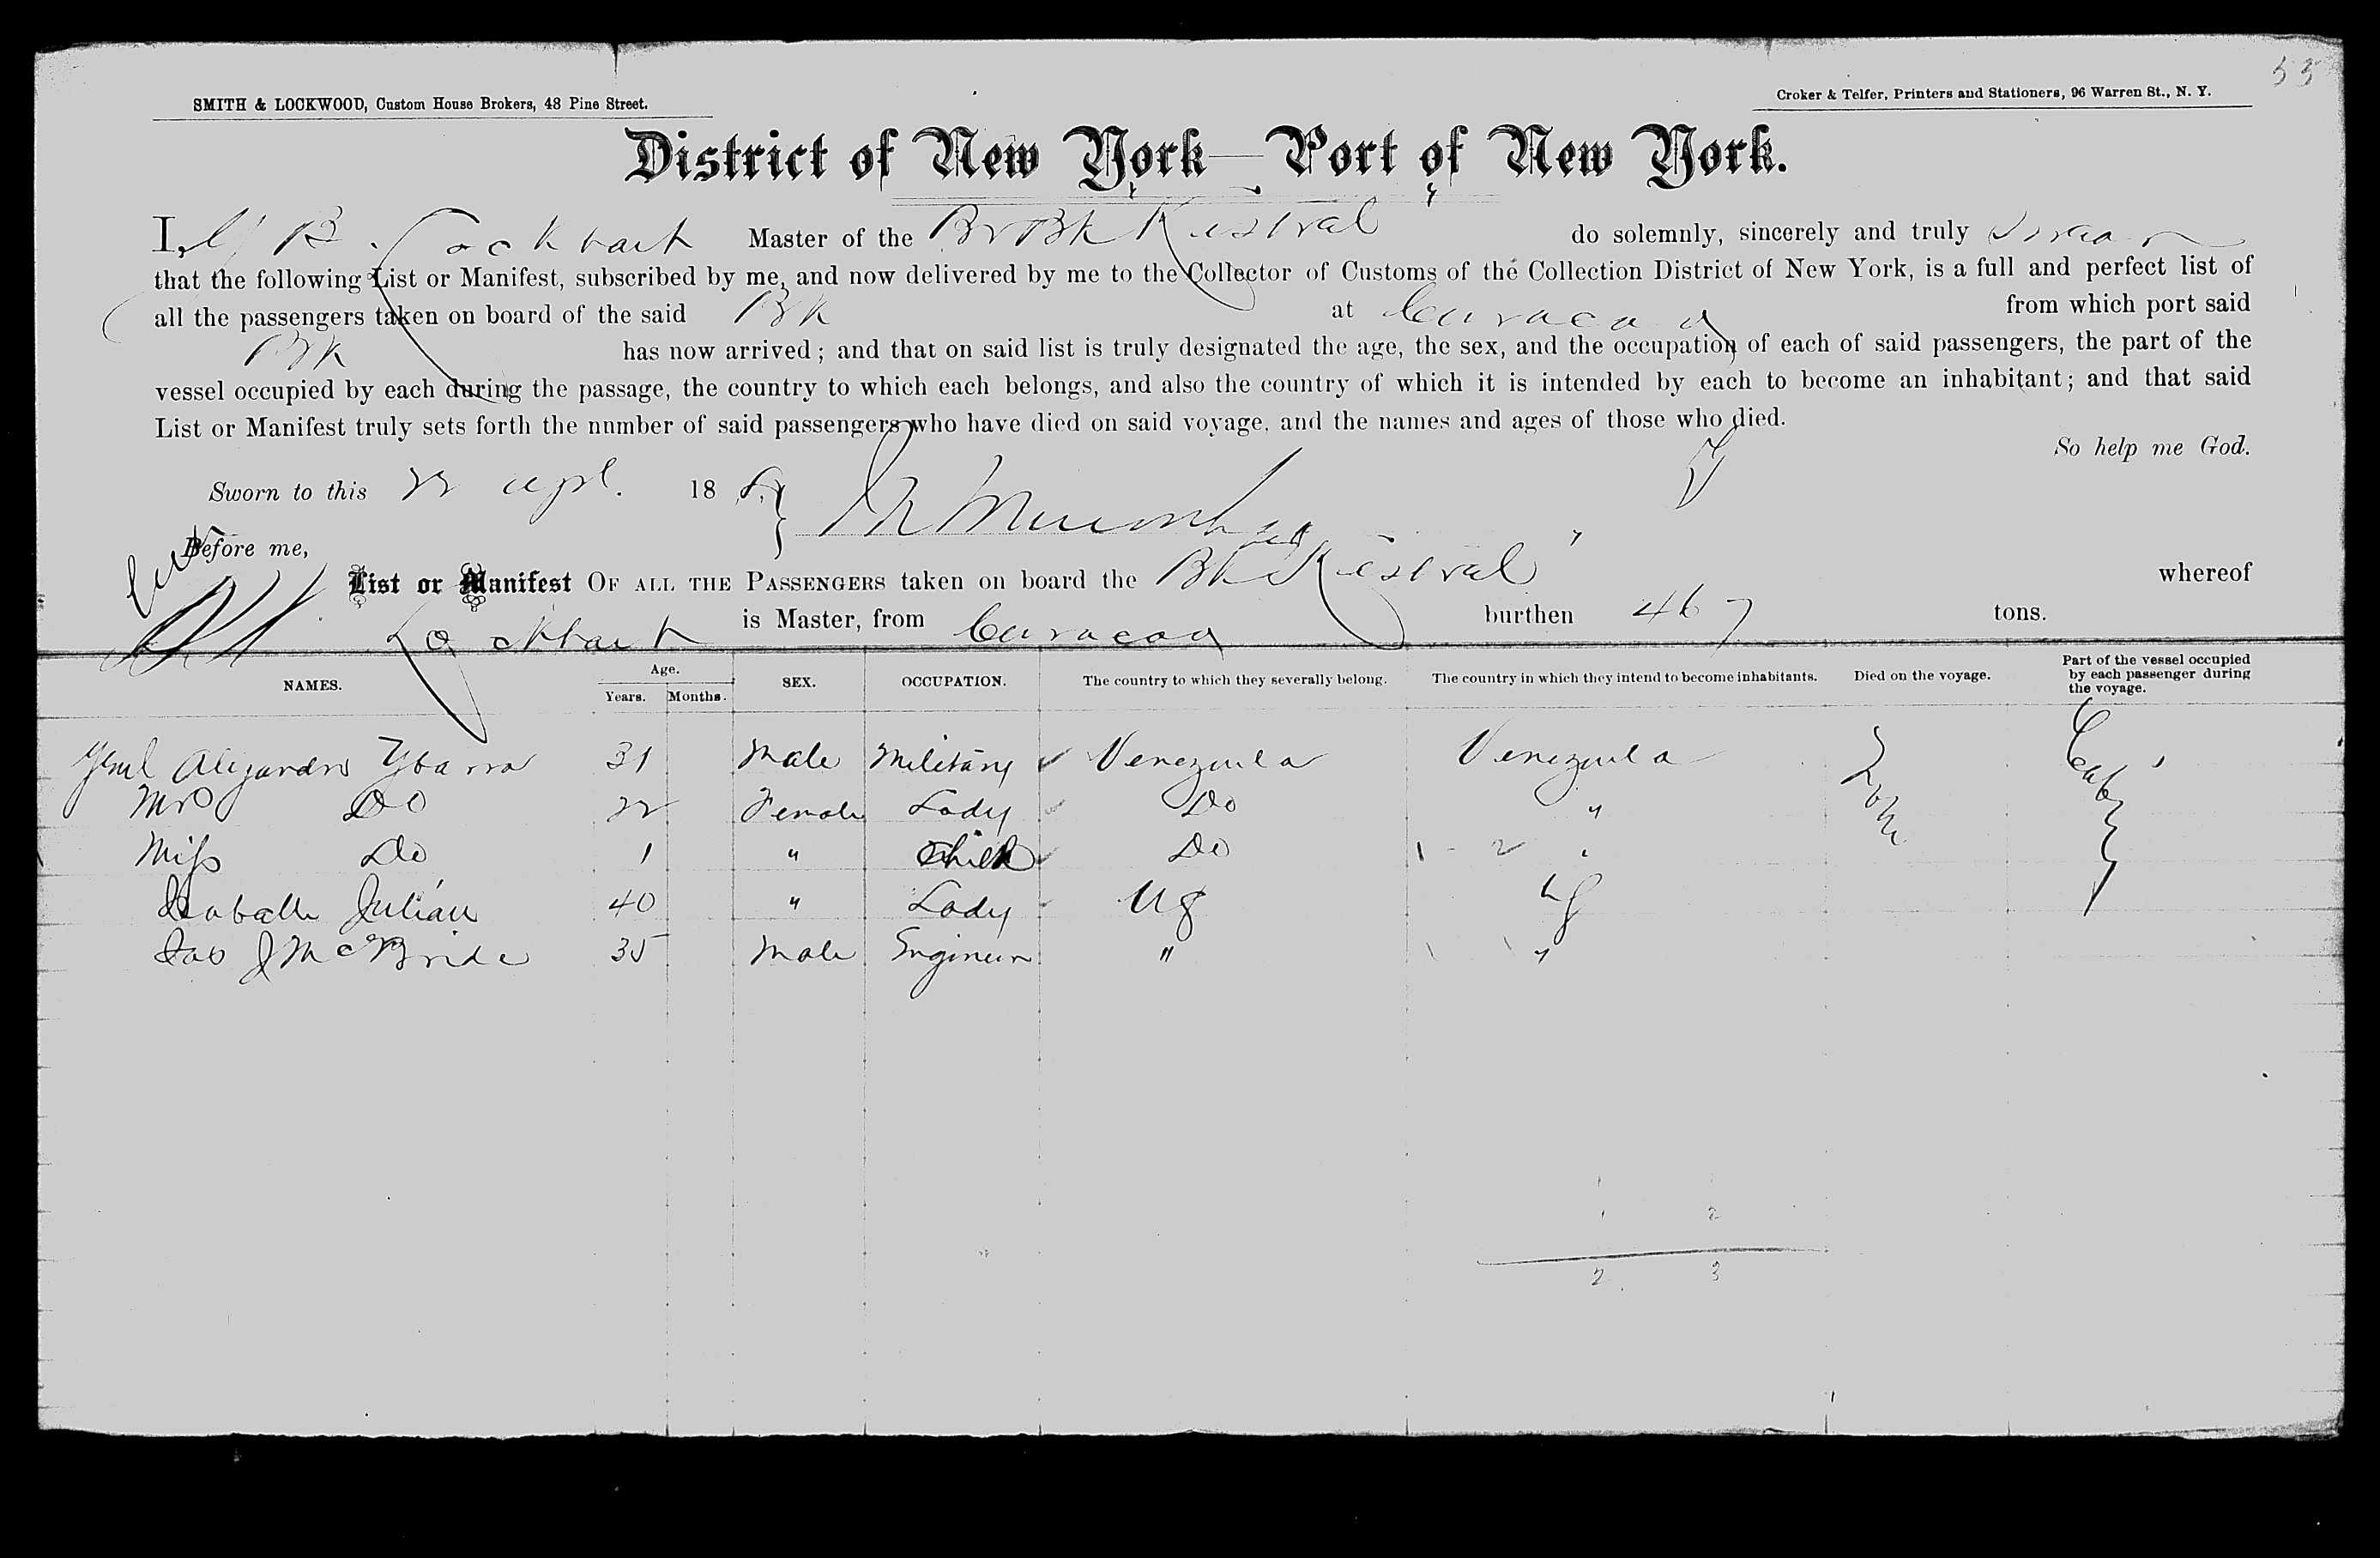 55
SMITH & LOCKWOOD, Custom House Brokers, 48 Pine Street.
Croker & Telfer, Printers and Stationers, 96 Warren St., N. Y.
District of New York—Port of New York.
I, B. Lockhart Master of the Br Bk Kestrel do solemnly, sincerely and truly swear
that the following List or Manifest, subscribed by me, and now delivered by me to the Collector of Customs of the Collection District of New York, is a full and perfect list of
all the passengers taken on board of the said Bk at Curacoa from which port said
Bk has now arrived; and that on said list is truly designated the age, the sex, and the occupation of each of said passengers, the part of the
vessel occupied by each during the passage, the country to which each belongs, and also the country of which it is intended by each to become an inhabitant; and that said
List or Manifest truly sets forth the number of said passengers who have died on said voyage, and the names and ages of those who died.
So help me God.
Sworn to this 22 Apl. 18
Before me,
List or Manifest OF ALL THE PASSENGERS taken on board the Bk Kestrel whereof
Lockhart is Master, from Curacoa burthen 467 tons.
NAMES. Age. Years. Months. SEX. OCCUPATION. The country to which they severally belong. The country in which they intend to become inhabitants. Died on the voyage. Part of the vessel occupied by each passenger during the voyage.
Genl Alejandro Ybarra 31 Male Military Venezuela Venezuela None Cabin
Mrs Do 22 Female Lady Do "
Miss Do 1 " Child Do "
Isabella Julian 40 " Lady US US
Jas J McBride 35 Male Engineer " "
2
2 3